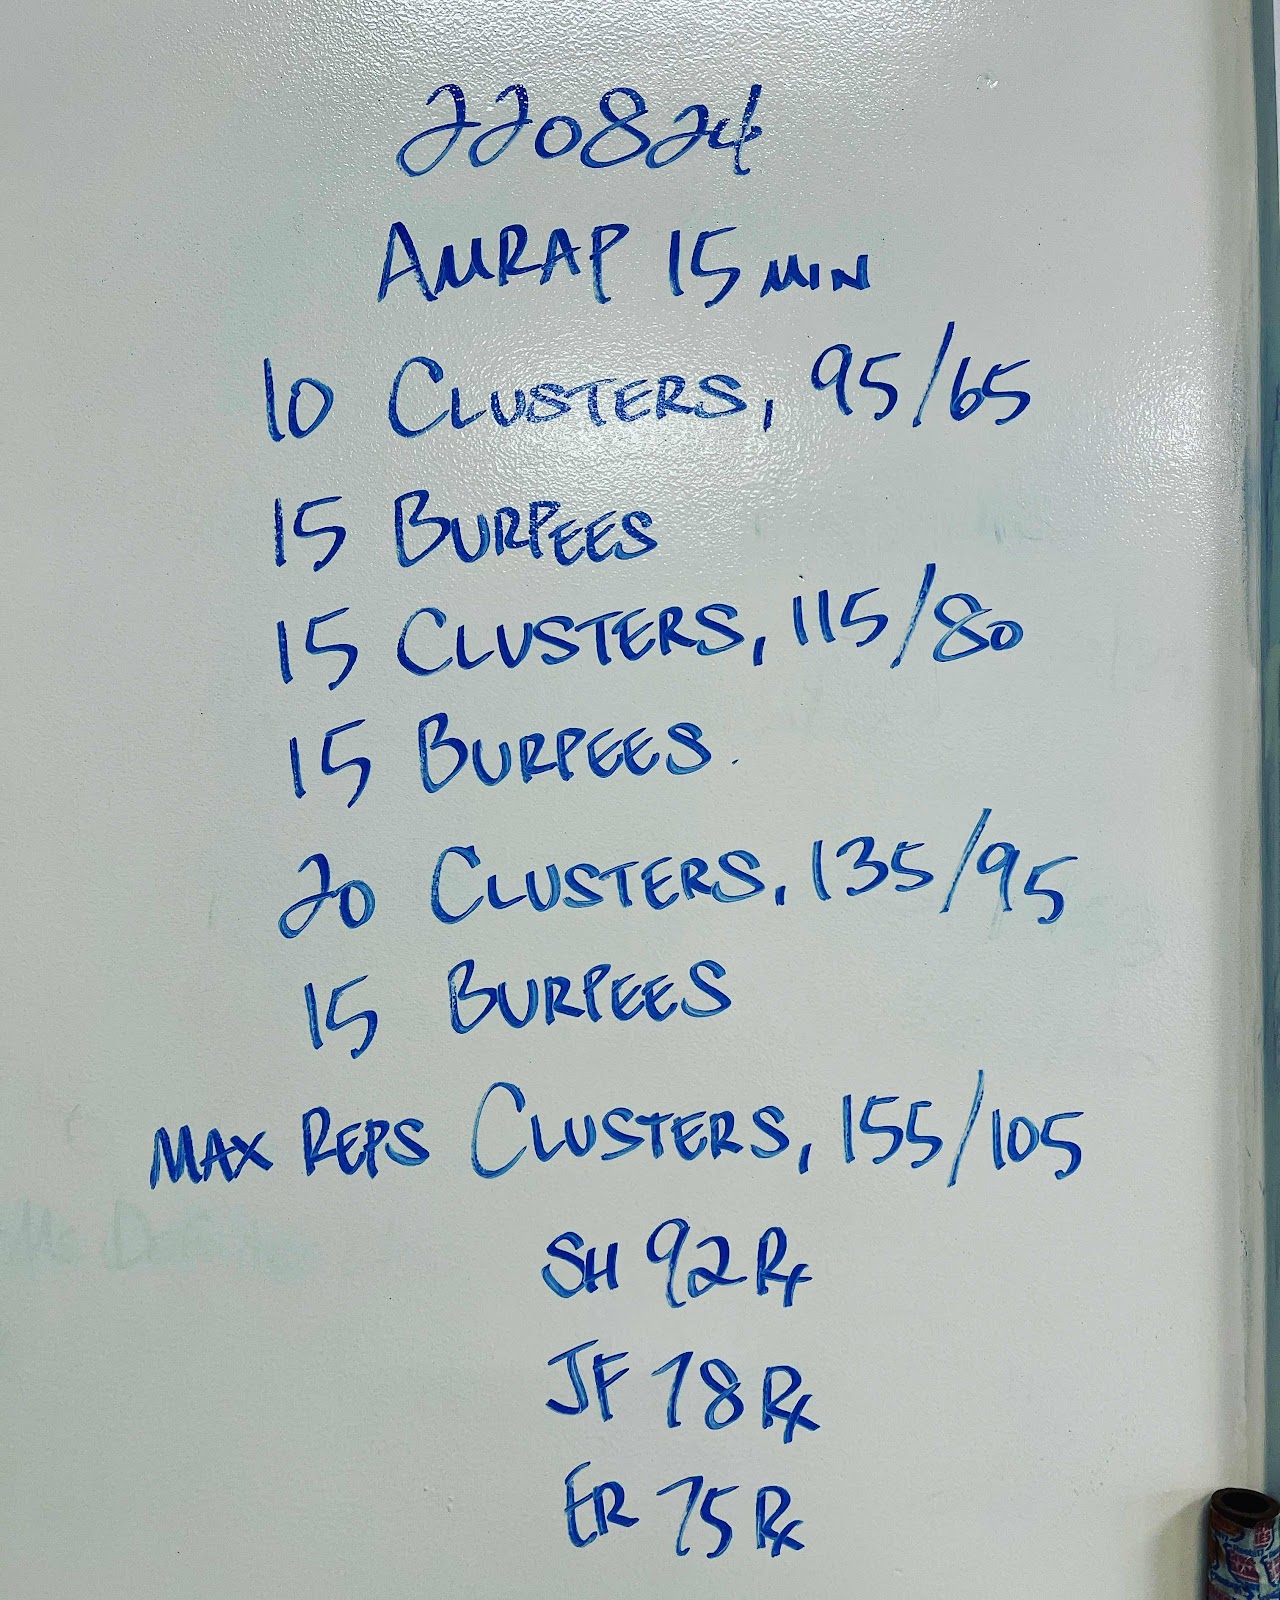 220824
AMRAP 15 MIN
10 CLUSTERS, 95/65
15 BURPEES
15 CLUSTERS, 115/80
15 BURPEES
20 CLUSTERS, 135/95
15 BURPEES
MAX REPS CLUSTERS, 155/105
SH 92 Rx
JF 78 Rx
ER 75 Rx